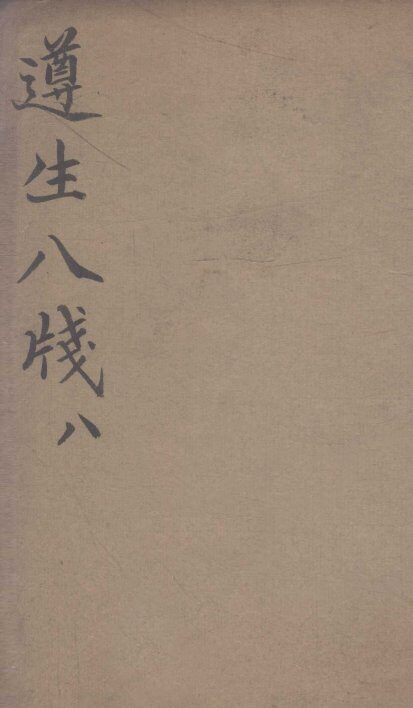 遵生八牋八